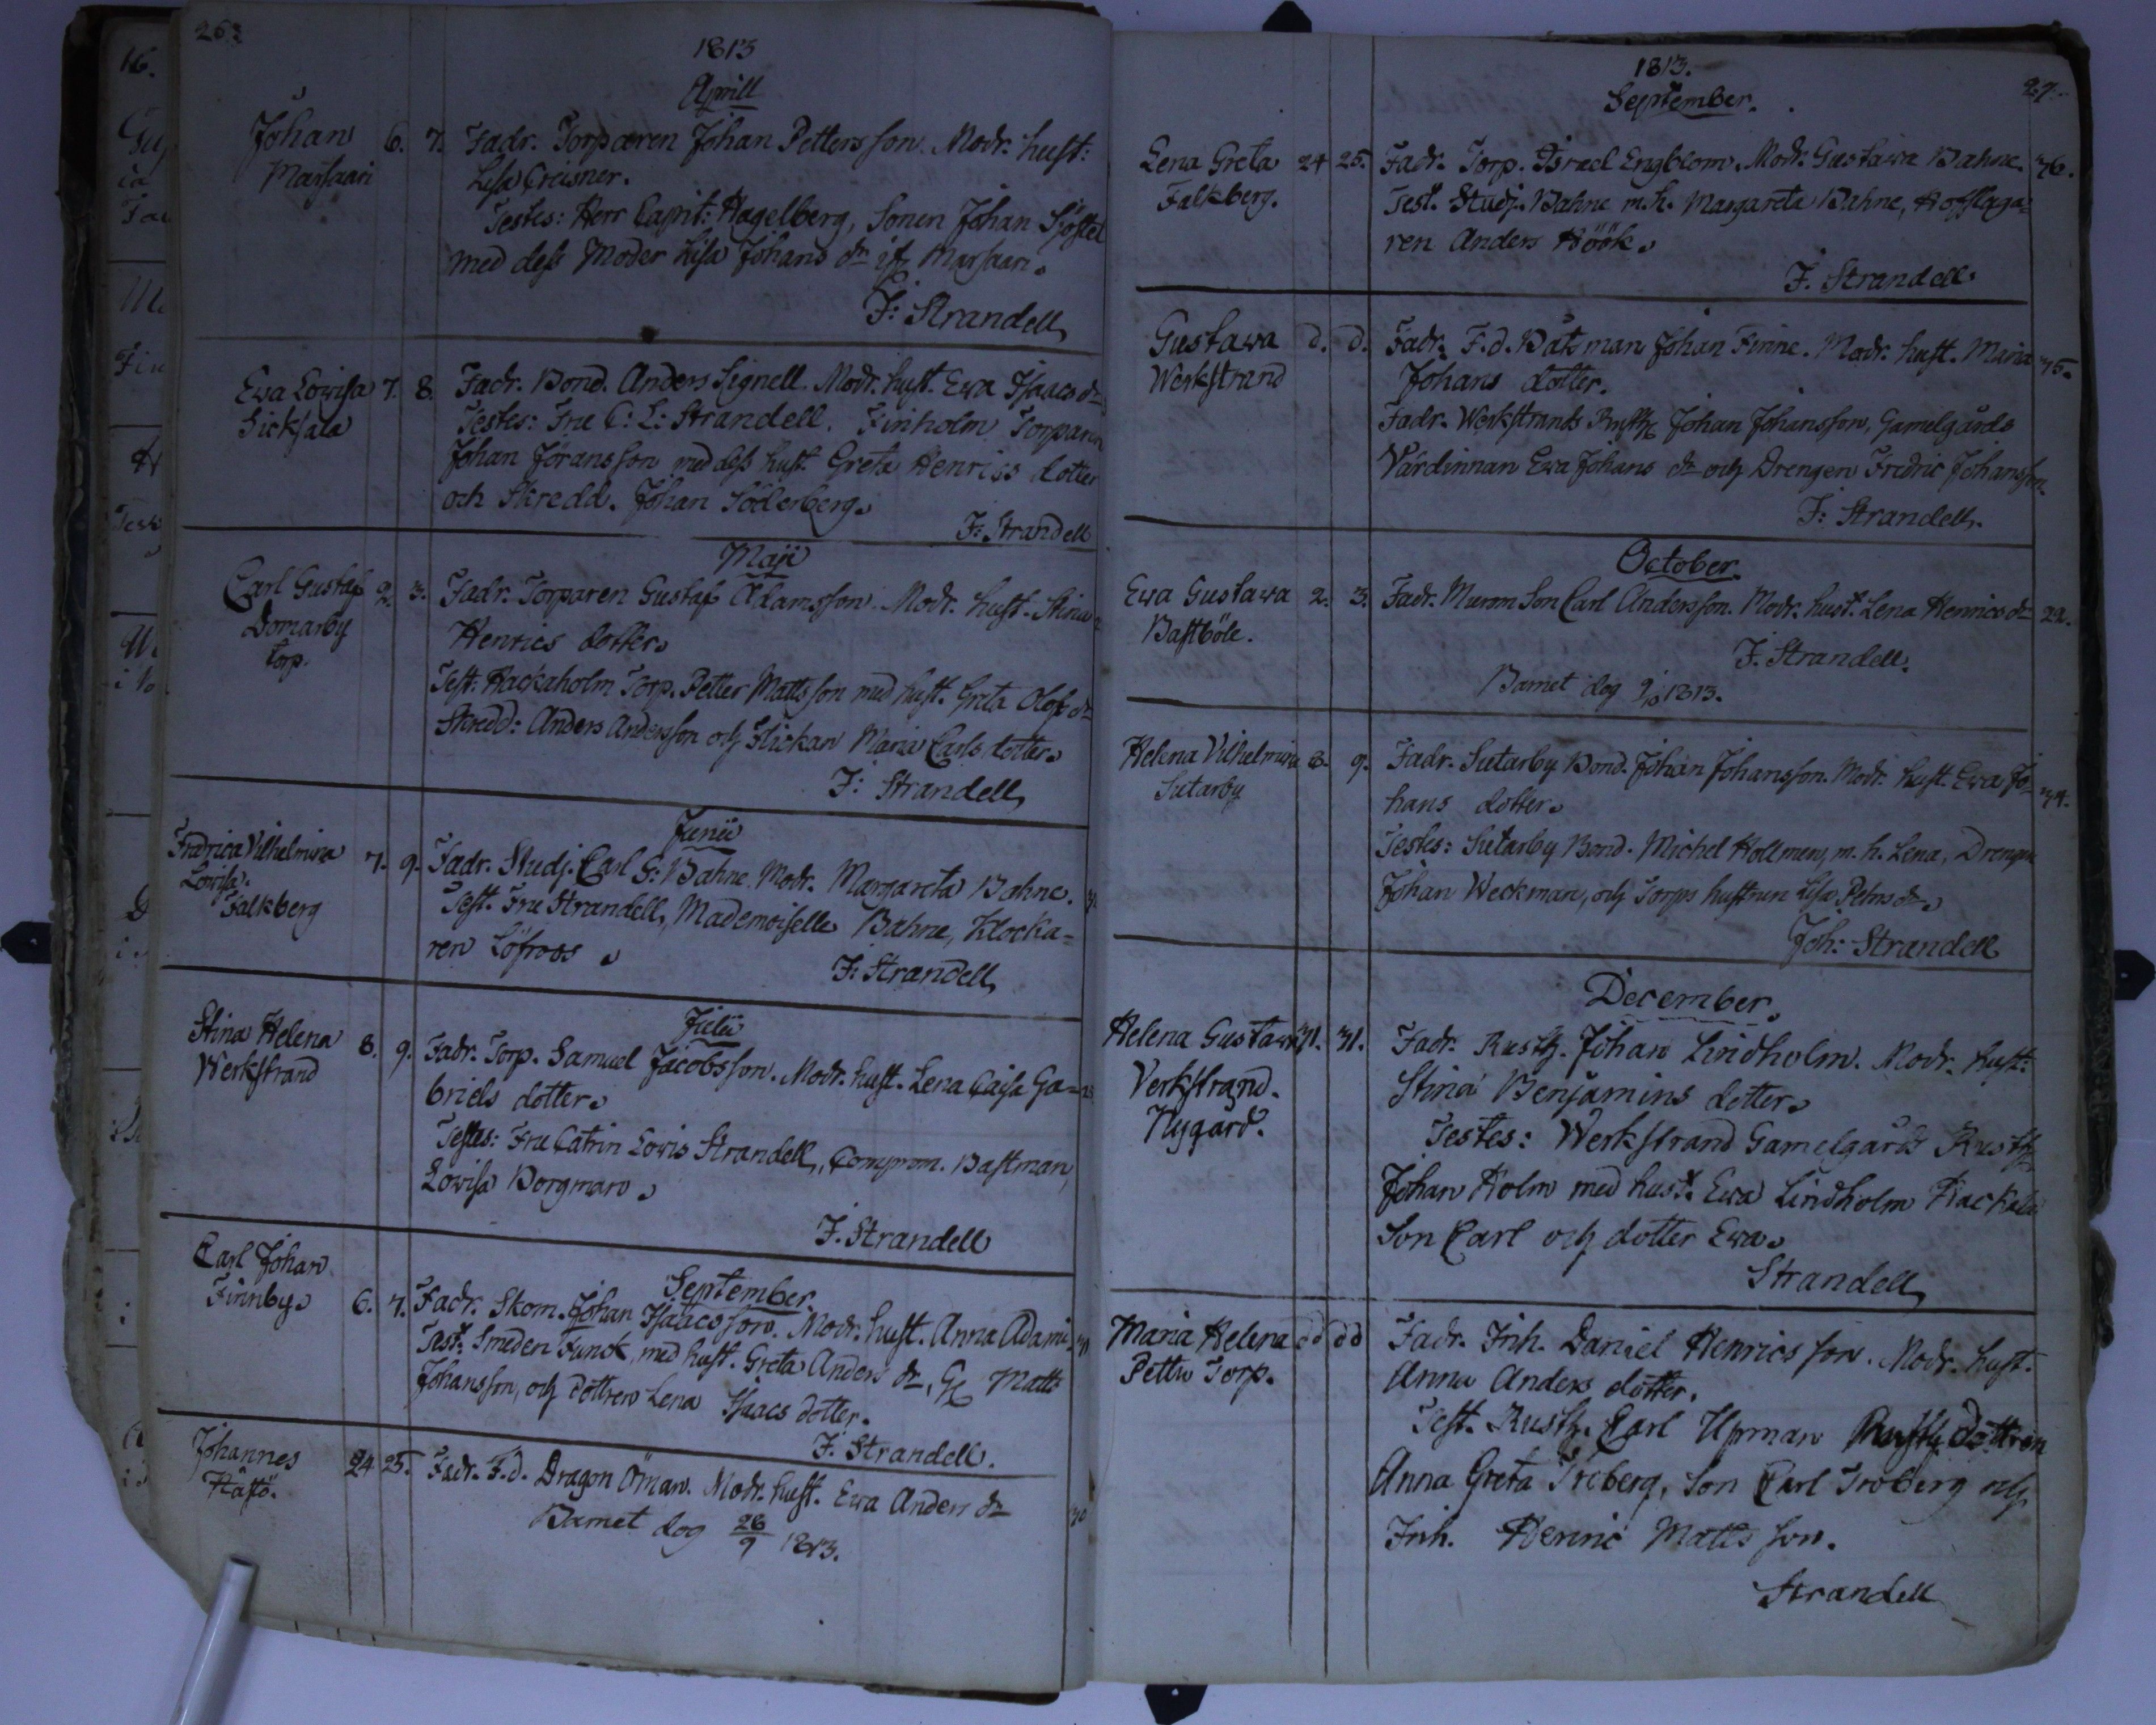 1813
Aprill
Johan 6. 7. Fadr. Torparen Johan Petters son. Modr. hust:
Marsaari Lisa Creisner.
Testes: Herr Capit: Hagelberg, Sonen Johan
med dess Moder Lisa Johans dr Marsaari.
F: Strandell
Ewa Lowisa 7. 8. Fadr. Bond. Anders Signell. Modr. hust. Ewa Isaacs dr
Sicksala Testes: Fru C: L: Strandell. Finholm Torparen
Johan Jöransson med dess hust. Greta Henrics dotter
och Skredd. Johan Söderberg.
F: Strandell
Maji
Carl Gustaf 2. 3. Fadr. Torparen Gustaf Adamsson. Modr. hust. Stina
Domarby Henrics dotter.
torp. Test: Hackaholm Torp. Petter Mattsson med hust. Greta Olofs dr
Skredd: Anders Andersson och Flickan Maria Carls dotter.
F: Strandell
Junii
Fredrica Vilhelmina 7. 9. Fadr. Studj. Carl G: Bahne. Modr. Margareta Bahne.
Lowisa. Test. Fru Strandell, Mademoiselle Bahne, Klocka=
Falkberg ren Löfroos
F: Strandell
Julii
Stina Helena 8. 9. Fadr. Torp. Samuel Jacobsson. Modr. hust. Lena Caisa Ga=
Werkstrand briels dotter.
Testes: Fru Catrin Lowis Strandell, Bastman,
Lowisa Borgman.
F. Strandell
September.
Carl Johan 6. 7. Fadr. Skom. Johan Isaacsson. Modr. hust. Anna Adams
Finnby. Test: Smeden Funck, med hust. Greta Anders dr, Matts
Johansson, och dottren Lena Isaacs dotter.
F. Strandell.
Johannes 24 25. Fadr. F.d. Dragon Öman. Modr. hust. Ewa Anders dr
Barnet dog 28/9 1813.
1813. 27.
September.
Lena Greta 24 25. Fadr. Torp. Israel Engblom. Modr. Gustawa Bahne. 36.
Falkberg. Test. Studj. Bahne m.h. Margareta Bahne, Hofslaga=
ren Anders Höök.
F. Strandell.
Gustawa d. d. Fadr. F.d. Båtsman Johan Finne. Modr. hust. Maria 35.
Werkstrand Johans dotter.
Fadr. Werkstrands Rusth. Johan Johansson, Gamelgårds
Värdinnan Ewa Johans dr och Drengen Fredric Johansson.
F: Strandell.
October.
Ewa Gustawa 2. 3. Fadr. Murm Son Carl Andersson. Modr. hust. Lena Henrics dr 22.
Bastböle. F. Strandell.
Barnet dog 9/10 1813.
Helena Vilhelmina 8. 9. Fadr. Sutarby Bond. Johan Johansson. Modr. hust. Ewa Jo= 34.
Sutarby hans dotter.
Testes: Sutarby Bond. Michel Hollmen, m. h. Lena, Drengen
Johan Weckman, och Torps hustrun Lisa Pehrs dr.
Joh: Strandell
December.
Helena Gustawa 31. 31. Fadr. Rusth. Johan Lindholm. Modr. hust:
Verkstrand. Stina Benjamins dotter.
Nygård. Testes: Werkstrand Gamelgårds Rusth.
Johan Holm med hust. Ewa Lindholm
Son Carl och dotter Ewa.
Strandell
Maria Helena dd dd Fadr. Inh. Daniel Henrics son. Modr. hust.
Torp. Anna Anders dotter.
Test. Rusth. Carl Upman Rusth. dottren
Anna Greta Troberg, Son Carl Troberg och
Inh. Henric Matts son.
Strandell